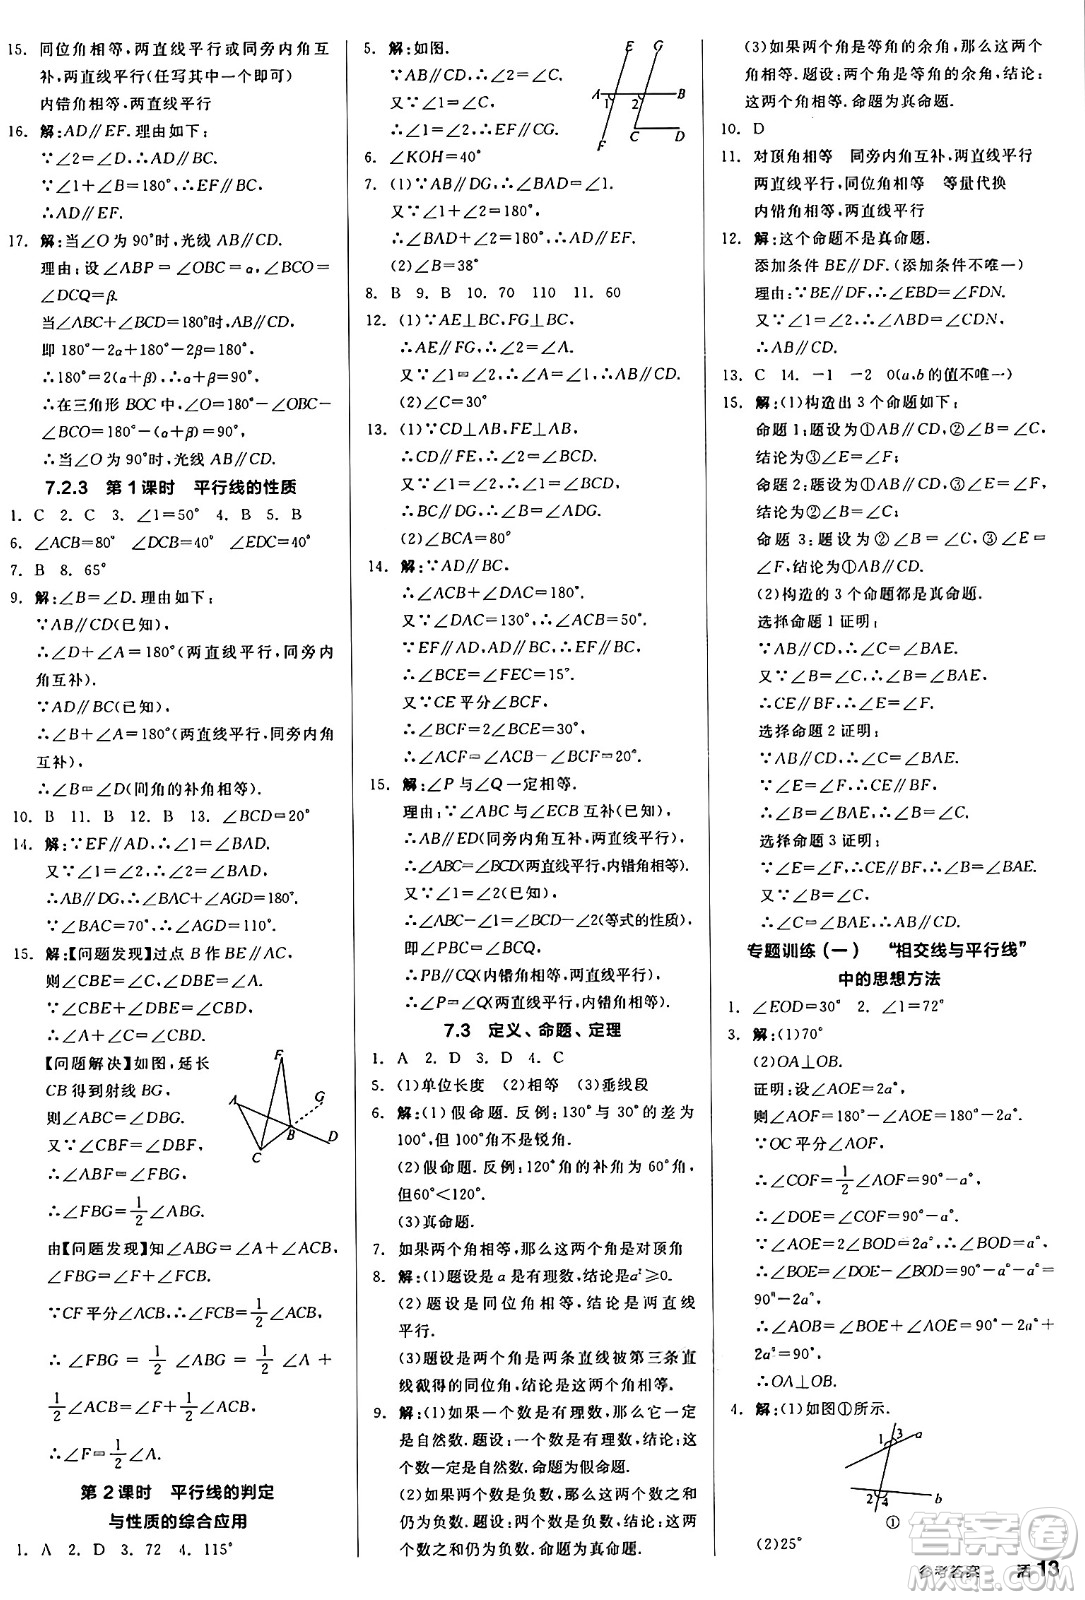 15. 同位角相等,两直线平行或同旁内角互
补,两直线平行(任写其中一个即可)
内错角相等,两直线平行
16. 解:AD∥EF.理由如下:
∵∠2=∠D,∴AD∥BC.
∵∠1+∠B=180°,∴EF∥BC.
∴AD∥EF.
17. 解:当∠O为90°时,光线AB∥CD.
理由:设∠ABP=∠OBC=α,∠BCO=
∠DCQ=β.
当∠ABC+∠BCD=180°时,AB∥CD.
即180°-2α+180°-2β=180°,
∴180°=2(α+β),∴α+β=90°,
∴在三角形BOC中,∠O=180°-∠OBC-
∠BCO=180°-(α+β)=90°,
∴当∠O为90°时,光线AB∥CD.
7.2.3 第1课时 平行线的性质
1. C 2. C 3. ∠1=50° 4. B 5. B
6. ∠ACB=80° ∠DCB=40° ∠EDC=40°
7. B 8. 65°
9. 解:∠B=∠D.理由如下:
∵AB∥CD(已知),
∴∠D+∠A=180°(两直线平行,同旁内
角互补).
∵AD∥BC(已知),
∴∠B+∠A=180°(两直线平行,同旁内角
互补),
∴∠B=∠D(同角的补角相等).
10. B 11. B 12. B 13. ∠BCD=20°
14. 解:∵EF∥AD,∴∠2=∠3.
又∵∠1=∠2,∴∠1=∠3,
∴AB∥DG,∴∠BAC+∠AGD=180°.
∵∠BAC=70°,∴∠AGD=110°.
15. 解:【问题发现】过点B作BE∥AC,
则∠A=∠ABE,∠C=∠CBE.
∵∠CBE+∠ABE=∠ABC,
∴∠A+∠C=∠ABC.
【问题解决】如图,延长
CB得到射线BG,
则∠ABC=∠DBG.
又∵∠CBF=∠DBF,
∴∠ABF=∠FBG,
∴∠FBG=1/2∠ABG.
由【问题发现】知∠ABG=∠A+∠ACB,
∠FBG=∠F+∠FCB.
∵CF平分∠ACB,∴∠FCB=1/2∠ACB,
∴∠FBG=1/2∠ABG=1/2∠A+
1/2∠ACB=∠F+1/2∠ACB,
∴∠F=1/2∠A.
第2课时 平行线的判定
与性质的综合应用
1. A 2. D 3. 72 4. 115°
5. 解:如图.
∵AB∥CD,∴∠2=∠C.
又∵∠1=∠C,
∴∠1=∠2,∴EF∥CG.
E G A 1 2 B F C D
6. ∠KOH=40°
7. (1)∵AB∥DG,∴∠BAD=∠1.
又∵∠1+∠2=180°,
∴∠BAD+∠2=180°,∴AD∥EF.
(2)∠B=38°
8. B 9. B 10. 70 110 11. 60
12. (1)∵AE⊥BC,FG⊥BC,
∴AE∥FG,∴∠A=∠2.
又∵∠1=∠2,∴∠A=∠1,∴AB∥CD.
(2)∠C=30°
13. (1)∵CD⊥AB,FE⊥AB,
∴CD∥FE,∴∠2=∠BCD.
又∵∠1=∠2,∴∠1=∠BCD,
∴BC∥DG,∴∠B=∠ADG.
(2)∠BCA=80°
14. 解:∵AD∥BC,
∴∠ACB+∠DAC=180°.
又∵∠DAC=130°,∴∠ACB=50°.
∵EF∥AD,AD∥BC,∴EF∥BC,
∴∠BCE=∠FEC=15°.
又∵CE平分∠BCF,
∴∠BCF=2∠BCE=30°,
∴∠ACF=∠ACB-∠BCF=20°.
15. 解:∠P与∠Q一定相等.
理由:∵∠ABC与∠ECB互补(已知),
∴AB∥ED(同旁内角互补,两直线平行),
∴∠ABC=∠BCD(两直线平行,内错角相等).
又∵∠1=∠2(已知),
∴∠ABC-∠1=∠BCD-∠2(等式的性质),
即∠PBC=∠BCQ,
∴PB∥CQ(内错角相等,两直线平行),
∴∠P=∠Q(两直线平行,内错角相等).
7.3 定义、命题、定理
1. A 2. D 3. D 4. C
5. (1)单位长度 (2)相等 (3)垂线段
6. 解:(1)假命题.反例:130°与30°的差为
100°,但100°角不是锐角.
(2)假命题.反例:120°角的补角为60°角,
但60°<120°.
(3)真命题.
7. 如果两个角相等,那么这两个角是对顶角
8. 解:(1)题设是a是有理数,结论是a²≥0.
(2)题设是同位角相等,结论是两直线
平行.
(3)题设是两个角是两条直线被第三条直
线截得的同位角,结论是这两个角相等.
9. 解:(1)如果一个数是有理数,那么它一定
是自然数.题设:一个数是有理数,结论:这
个数一定是自然数.命题为假命题.
(2)如果两个数为负数,那么这两个数之和
仍为负数.题设:两个数为负数,结论:这
两个数之和仍为负数.命题为真命题.
(3)如果两个角是等角的余角,那么这两个
角相等.题设:两个角是等角的余角,结论:
这两个角相等.命题为真命题.
10. D
11. 对顶角相等 同旁内角互补,两直线平行
两直线平行,同位角相等 等量代换
内错角相等,两直线平行
12. 解:这个命题不是真命题.
添加条件BE∥DF.(添加条件不唯一)
理由:∵BE∥DF,∴∠EBD=∠FDN.
又∵∠1=∠2,∴∠ABD=∠CDN,
∴AB∥CD.
13. C 14. -1 -2 0(a,b的值不唯一)
15. 解:(1)构造出3个命题如下:
命题1:题设为①AB∥CD,②∠B=∠C,
结论为③∠E=∠F.
命题2:题设为①AB∥CD,③∠E=∠F,
结论为②∠B=∠C.
命题3:题设为②∠B=∠C,③∠E=
∠F,结论为①AB∥CD.
(2)构造的3个命题都是真命题.
选择命题1证明:
∵AB∥CD,∴∠C=∠BAE.
又∵∠B=∠C,∴∠B=∠BAE,
∴CE∥BF,∴∠E=∠F.
选择命题2证明:
∵AB∥CD,∴∠C=∠BAE.
∵∠E=∠F,∴CE∥BF,
∴∠B=∠BAE,∴∠B=∠C.
选择命题3证明:
∵∠E=∠F,∴CE∥BF,∴∠B=∠BAE.
又∵∠B=∠C,
∴∠C=∠BAE,∴AB∥CD.
专题训练(一) “相交线与平行线”
中的思想方法
1. ∠EOD=30° 2. ∠1=72°
3. 解:(1)70°
(2)OA⊥OB.
证明:设∠AOE=2a°,
则∠AOF=180°-∠AOE=180°-2a°.
∵OC平分∠AOF,
∴∠COF=1/2∠AOF=90°-a°,
∴∠DOE=∠COF=90°-a°.
∵∠AOE=2∠BOD,∴∠BOD=a°,
∴∠BOE=∠DOE-∠BOD=90°-a°-a°=
90°-2a°,
∴∠AOB=∠BOE+∠AOE=90°-2a°+
2a°=90°,
∴OA⊥OB.
4. 解:(1)如图①所示.
1 3 a 2 4 b
①
(2)25°
A E G B D C F
答案圈
参考答案 活13